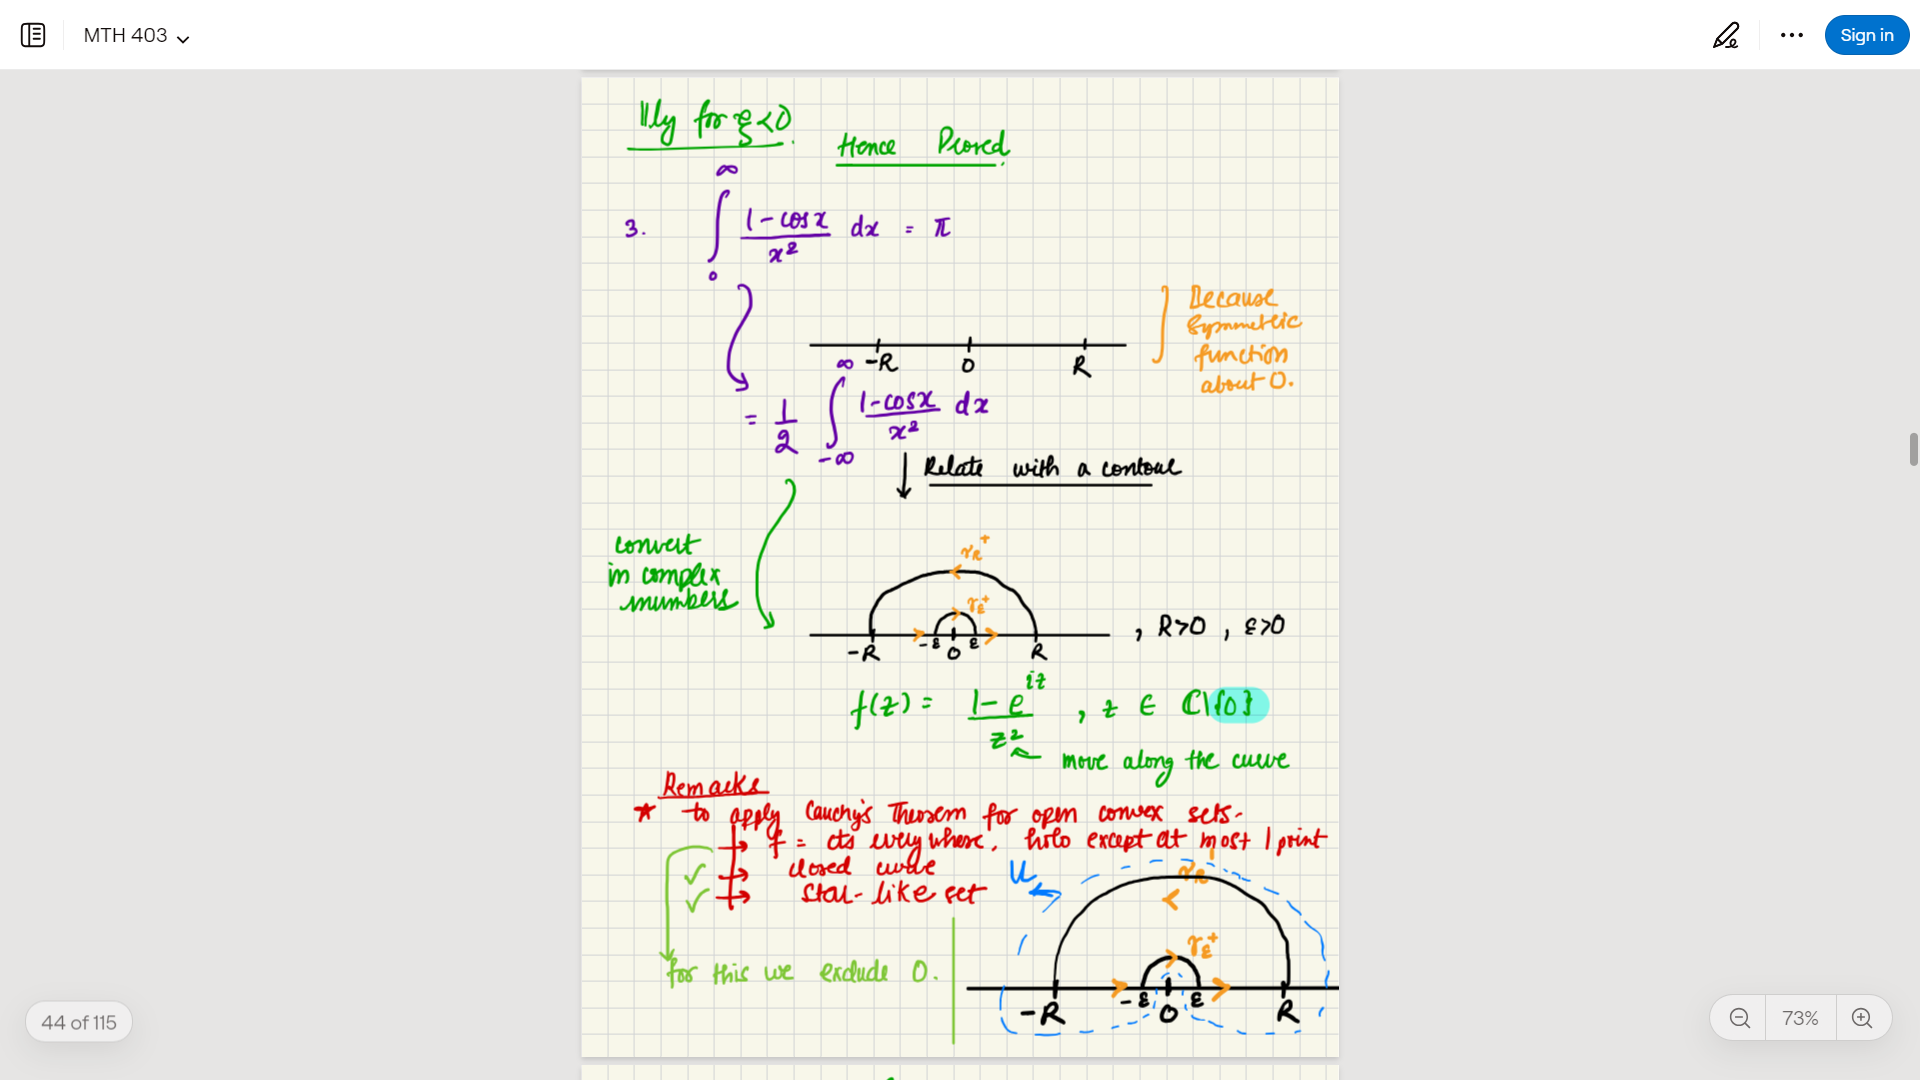 MTH 403
Sign in
llly for ξ<0.
Hence Proved.
3. ∫₀^∞ (1-cosx)/x² dx = π
Because
Symmetric
function
about 0.
-R 0 R
= 1/2 ∫_{-∞}^{∞} (1-cosx)/x² dx
Relate with a contour
convert
in complex
numbers
γ_R⁺
γ_ε⁺
-R -ε 0 ε R , R>0 , ε>0
f(z) = (1-e^{iz})/z² , z ∈ ℂ\{0}
move along the curve
Remarks
* to apply Cauchy's Theorem for open convex sets.
→ f = cts everywhere, holo except at most 1 point
✓ → closed curve
✓ → Star-like set
for this we exclude 0.
U
γ_R
γ_ε⁺
-R -ε 0 ε R
44 of 115
73%